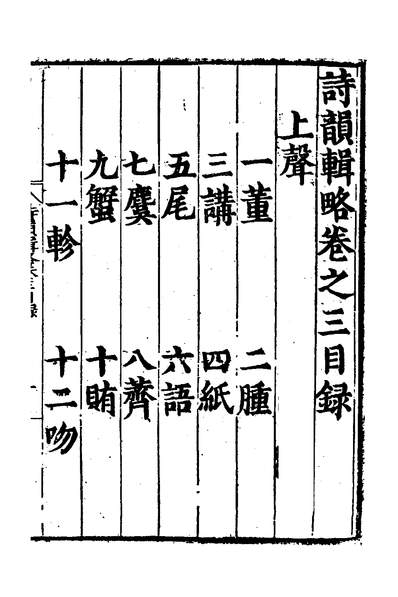 詩韻輯略卷之三目録
上聲
一董 二腫
三講 四紙
五尾 六語
七麌 八薺
九蟹 十賄
十一軫 十二吻